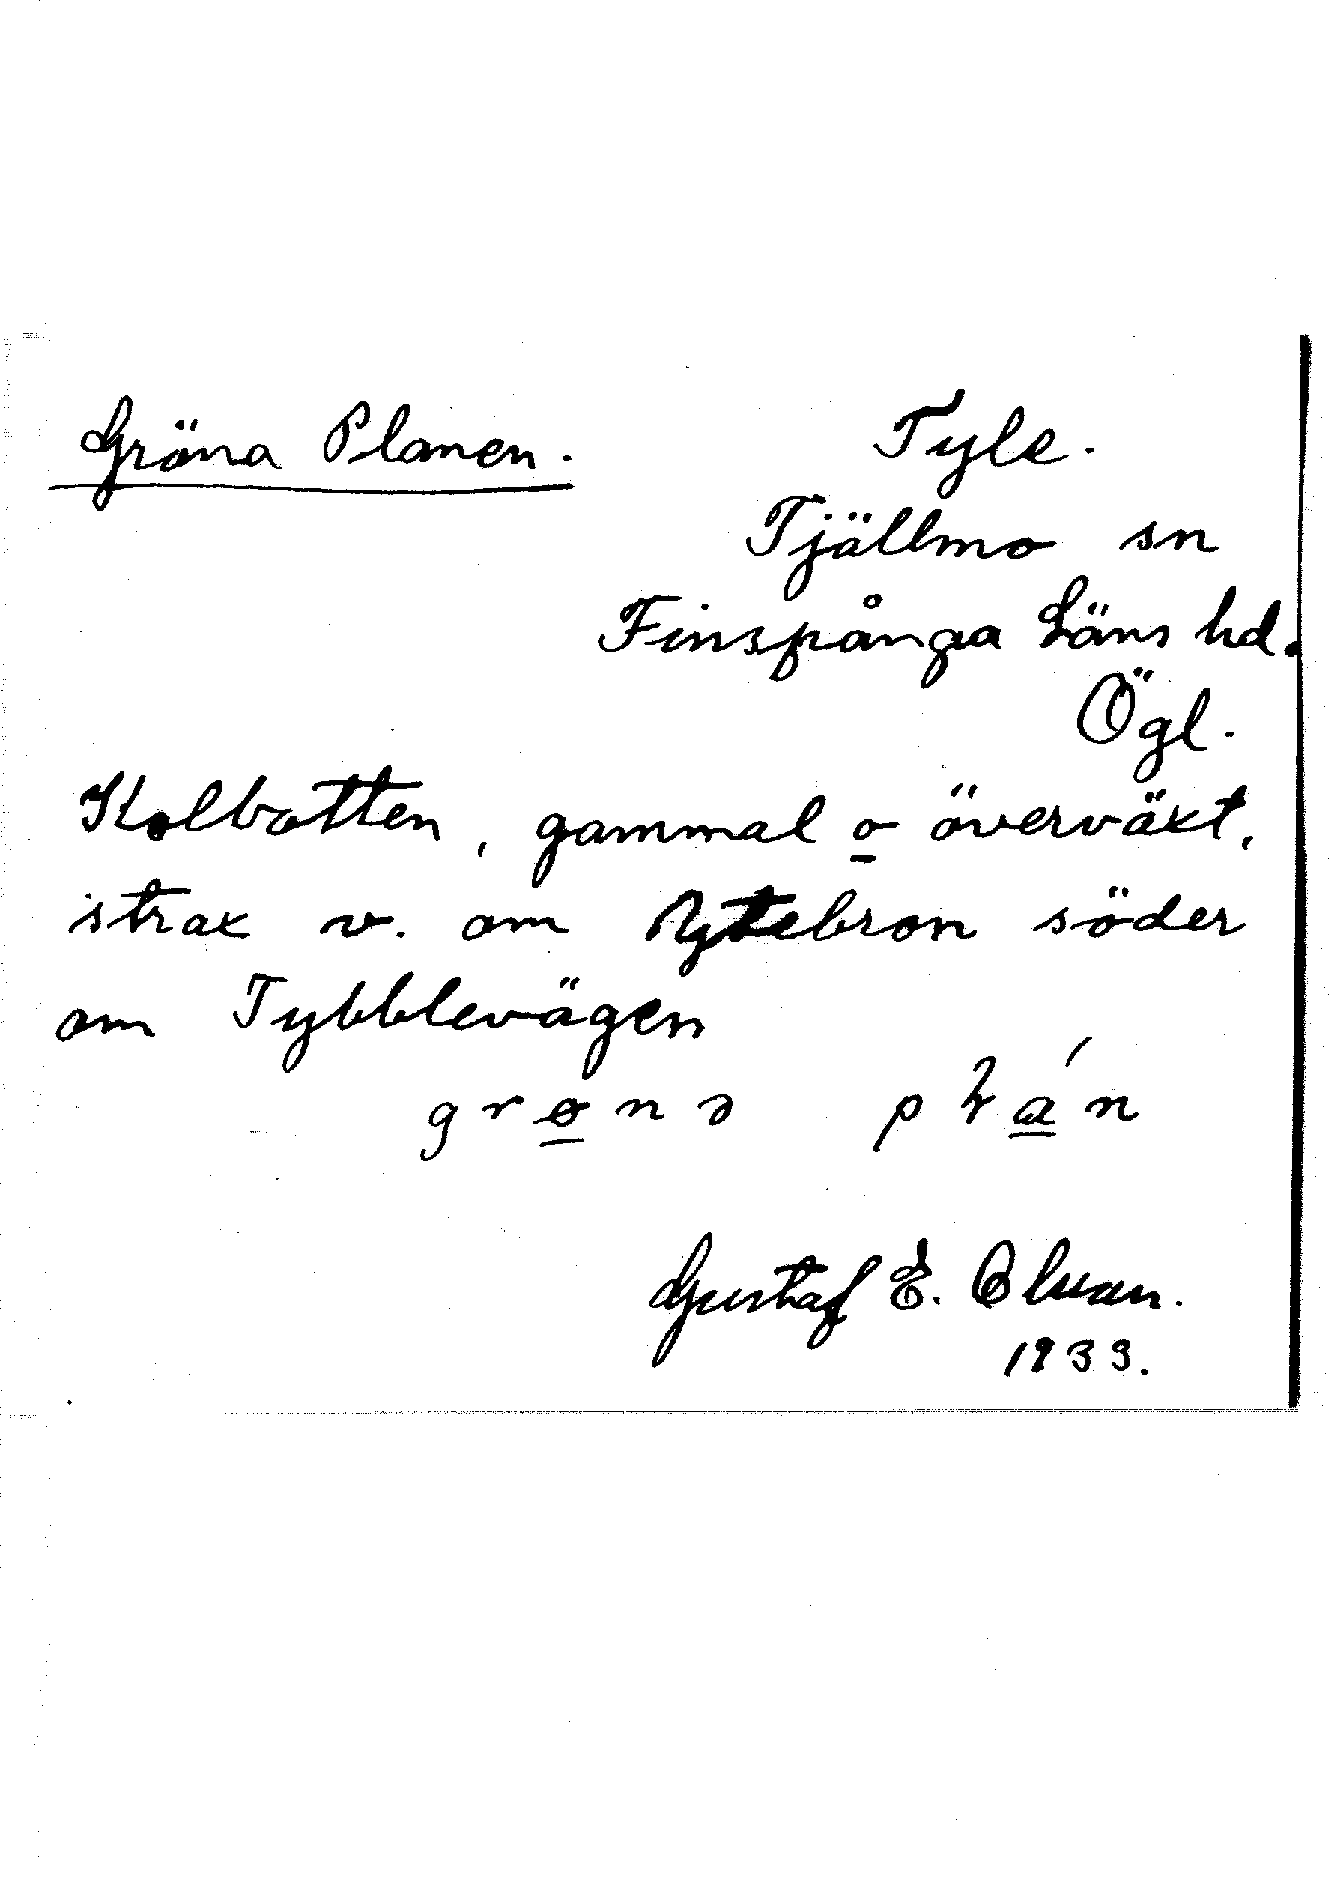 Gröna Planen. Tyle.
Tjällmo sn
Finspånga Läns hd.
Ögl.
Kolbotten, gammal o överväxt,
strax v. om Rytebron söder
om Tybblevägen
grøna
Gustaf E. Olsson.
1933.